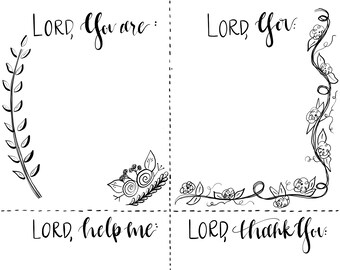 LORD, You are:
LORD, You:
LORD, help me:
LORD, thank You: